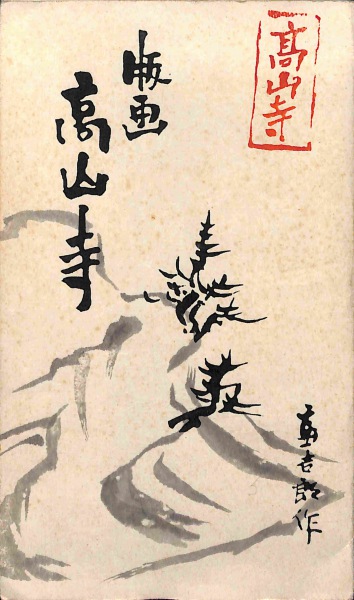 高山寺
版画
高山寺
直吉郎作